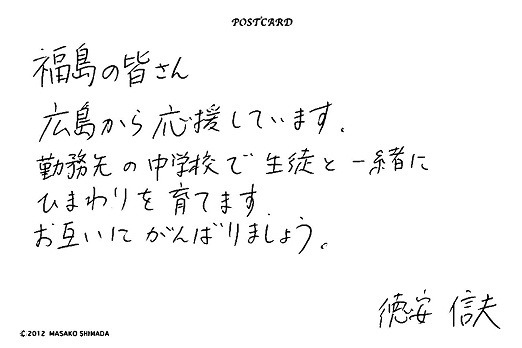 POSTCARD
福島の皆さん
広島から応援しています。
勤務先の中学校で生徒と一緒に
ひまわりを育てます.
お互いにがんばりましょう。
徳安 信夫
©2012 MASAKO SHIMADA